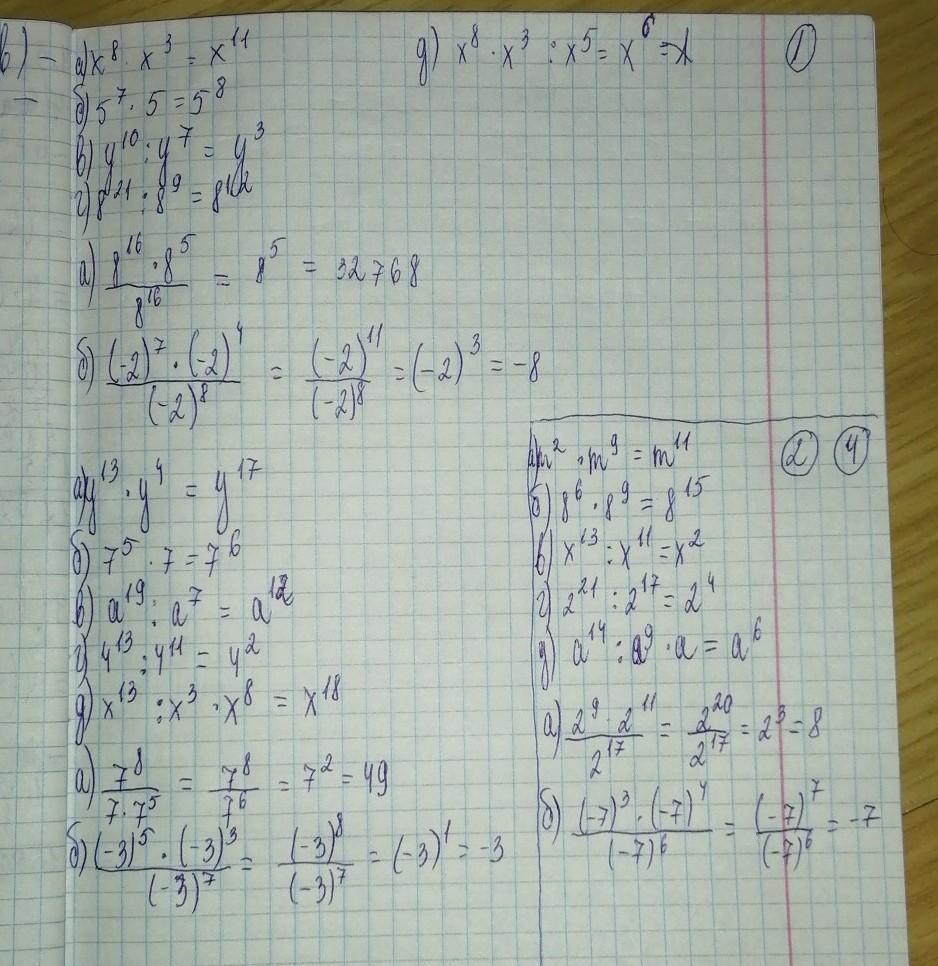 в) –
–
а) x⁸ · x³ = x¹¹
б) 5⁷ · 5 = 5⁸
в) y¹⁰ : y⁷ = y³
г) 8²¹ : 8⁹ = 8¹²
д) x⁸ · x³ : x⁵ = x⁶ = x
①
а) (8¹⁶ · 8⁵)/8¹⁶ = 8⁵ = 32768
б) ((-2)⁷ · (-2)⁴)/(-2)⁸ = (-2)¹¹/(-2)⁸ = (-2)³ = -8
а) y¹³ · y⁴ = y¹⁷
б) 7⁵ · 7 = 7⁶
в) a¹⁹ : a⁷ = a¹²
г) 4¹³ : 4¹¹ = 4²
д) x¹³ : x³ · x⁸ = x¹⁸
а) 7⁸/(7 · 7⁵) = 7⁸/7⁶ = 7² = 49
б) ((-3)⁵ · (-3)³)/(-3)⁷ = (-3)⁸/(-3)⁷ = (-3)¹ = -3
② ④
а) m² · m⁹ = m¹¹
б) 8⁶ · 8⁹ = 8¹⁵
в) x¹³ : x¹¹ = x²
г) 2²¹ : 2¹⁷ = 2⁴
д) a¹⁴ : a⁹ · a = a⁶
а) (2⁹ · 2¹¹)/2¹⁷ = 2²⁰/2¹⁷ = 2³ = 8
б) ((-7)³ · (-7)⁴)/(-7)⁶ = (-7)⁷/(-7)⁶ = -7